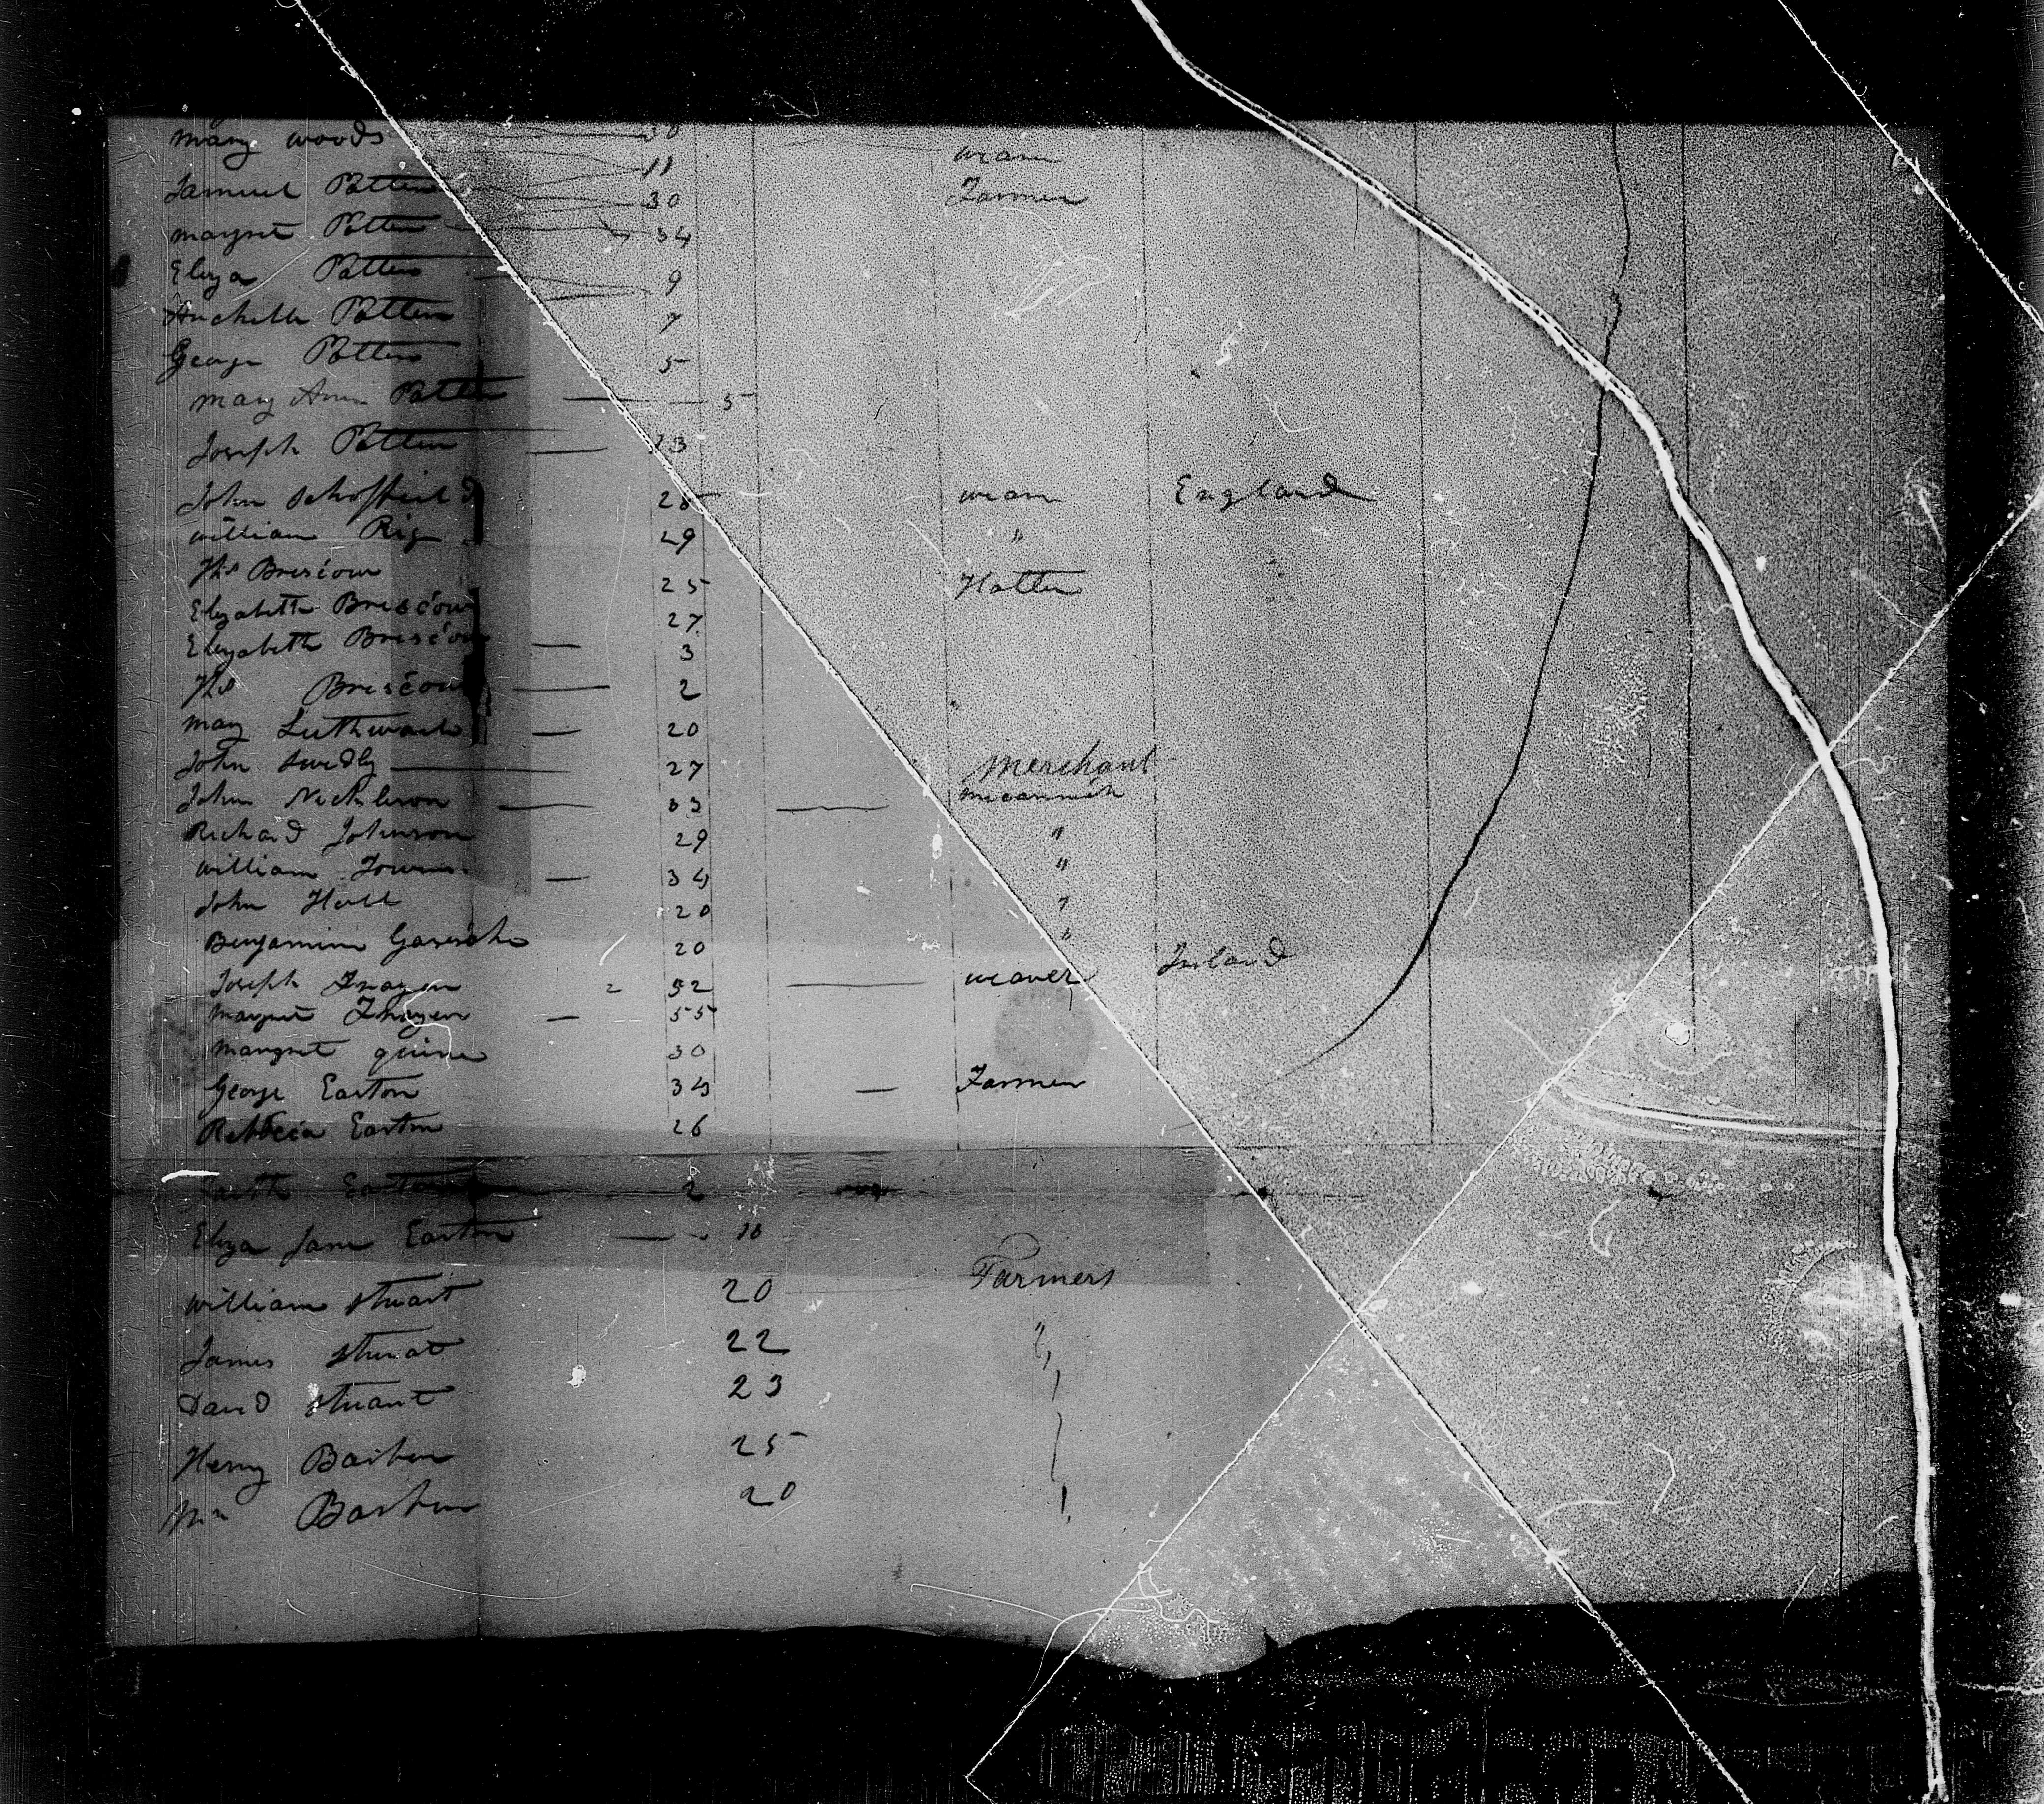 mary woods 30
11 weaver
Samuel Patten 30 Farmer
margret Patten 34
Eliza Patten 9
Patten 7
George Patten 5
mary Ann Patten 5
Joseph Patten 13
John Schoffield 25 weaver England
william Rig 29 "
Ths Briscow 25 Hatter
Elizabeth Briscow 27
Elizabeth Briscow 3
Ths Briscow 2
mary 20
John 27 merchant
John 33
Richard Johnson 29 "
william Towns 34 "
John Hall 20 "
Benjamin 20 "
Joseph Frazer 52 weaver Ireland
margret Frazer 55
margret quinn 30
George Easton 34 Farmer
Rebbeca Easton 26
Easton 2
Eliza Jane Easton 10
william Stuart 20 Farmers
James Stuart 22 "
David Stuart 23
Henry Barber 25
Barber 20